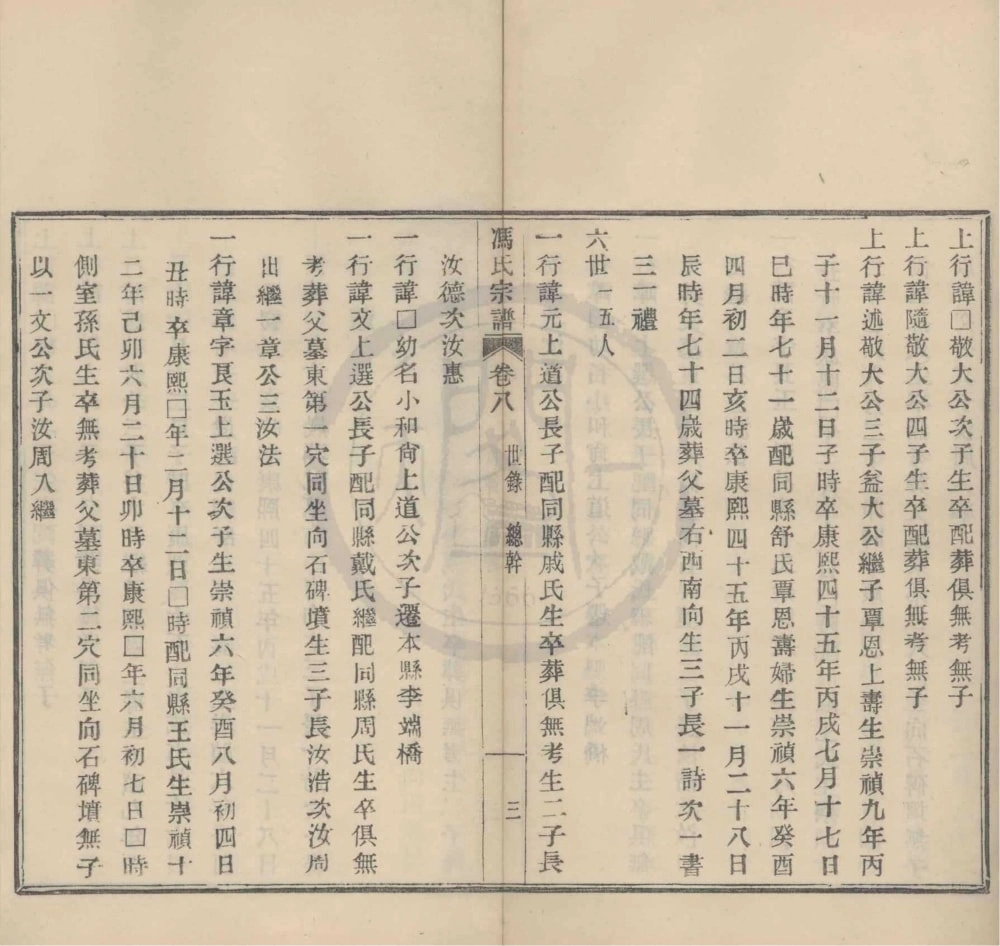 上行諱□敬大公次子生卒配葬俱無考無子
上行諱隨敬大公四子生卒配葬俱無考無子
上行諱述敬大公三子益大公繼子覃恩上壽生崇禎九年丙
子十一月十二日子時卒康熙四十五年丙戌七月十七日
巳時年七十一歲配同縣舒氏覃恩壽婦生崇禎六年癸酉
四月初二日亥時卒康熙四十五年丙戌十一月二十八日
辰時年七十四歲葬父墓右西南向生三子長一詩次一書
三一禮
六世一五人
一行諱元上道公長子配同縣戚氏生卒葬俱無考生二子長
馮氏宗譜 卷八 世錄 總幹 三
汝德次汝惠
一行諱□幼名小和尙上道公次子遷本縣李端橋
一行諱文上選公長子配同縣戴氏繼配同縣周氏生卒俱無
考葬父墓東第一穴同坐向石碑墳生三子長汝浩次汝周
出繼一章公三汝法
一行諱章字艮玉上選公次子生崇禎六年癸酉八月初四日
丑時卒康熙□年二月十三日□時配同縣王氏生崇禎十
二年己卯六月二十日卯時卒康熙□年六月初七日□時
側室孫氏生卒無考葬父墓東第二穴同坐向石碑墳無子
以一文公次子汝周入繼